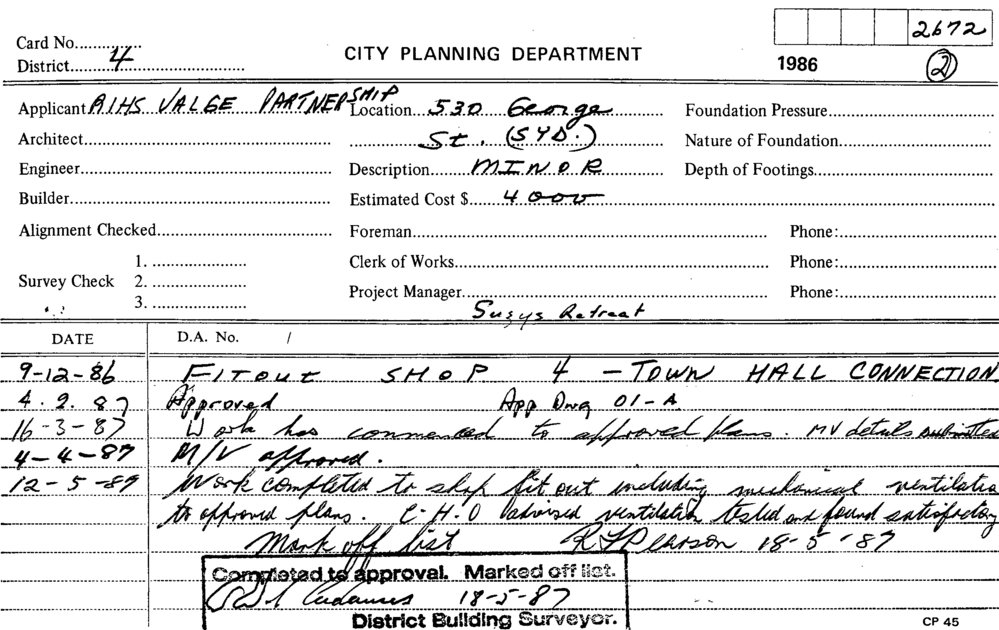 2672
Card No.
District 4
CITY PLANNING DEPARTMENT
1986
2
Applicant RIHS VALGE PARTNERSHIP
Location 530 George
Foundation Pressure
Architect
St. (SYD.)
Nature of Foundation
Engineer
Description MINOR
Depth of Footings
Builder
Estimated Cost $ 4000
Alignment Checked
Foreman
Phone:
Survey Check
1.
2.
3.
Clerk of Works
Phone:
Project Manager
Phone:
Susys Retreat
DATE
D.A. No. /
9-12-86 FITOUT SHOP 4 - TOWN HALL CONNECTION
4.2.87 Approved App Dwg 01-A
16-3-87 Work has commenced to approved plans. MV details submitted
4-4-87 M/V approved.
12-5-87 Work completed to shop fit out including mechanical ventilatio
to approved plans. C.H.O advised ventilation tested and found satisfactory
Mark off list R Pearson 18-5-87
Completed to approval. Marked off list.
18-5-87
District Building Surveyor.
CP 45